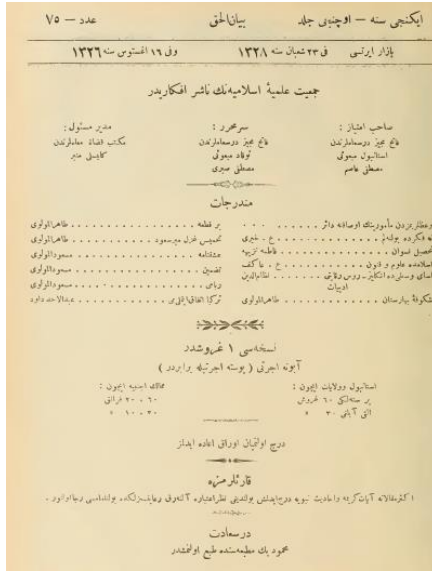 ایكنجی سنه — اوچنجی جلد
بیان الحق
عدد — ٧٥
بازار ایرتسی
فی ٢٣ شعبان سنه ١٣٢٨
وفی ١٦ اغستوس سنه ١٣٢٦
جمعیت علمیهٔ اسلامیه‌نك ناشر افكاریدر
صاحب امتیاز :
فاتح مجیز درسعاملرندن
استانبول مبعوثی
مصطفی عاصم
سرمحرر :
فاتح مجیز درسعاملرندن
توقاد مبعوثی
مصطفی صبری
مدیر مسئول :
مكتب قضاة معلملرندن
ماهر
مندرجات
وعظلریزدن مأمورینك اوصافنه دائر . . .
نه فكرده بولنه‌لم . . . ع . خیری
تحصیل نسوان . . . فاطمه نزیهه
اسلامده علوم و فنون . . . ع . عاكف
آسیای وسطی‌ده انكلیز - روس رقابتی . . . نظام‌الدین
ادبیات
شكوفهٔ بهارستان . . . طاهر المولوی
بر قطعه . . . طاهر المولوی
تخمیس غزل میرمسعود . . . طاهر المولوی
عشقنامه . . . مسعود المولوی
تضمین . . . مسعود المولوی
رباعی . . . مسعود المولوی
توركیا اتفاق . . . عبدالاحد داود
نسخه‌سی ١ غروشدر
آبونه اجرتی ( پوسته اجرتیله برابردر )
استانبول وولایات ایچون :
بر سنه‌لكی ٦٠ غروش
التی آیلغی ٣٠ »
ممالك اجنبیه ایچون :
٦٠ ، ٢٠ فرانق
٣٠ ، ١٠ »
درج اولنمیان اوراق اعاده ایدلمز
قارئلرمزه
اكثر مقالاته آیات كریمه واحادیث نبویه درج ایدلمش بولندیغی نظر اعتباره آلنه‌رق رعایتسزلكده بولنلمامسی رجا اولنور .
درسعادت
محمود بك مطبعه‌سنده طبع اولنمشدر